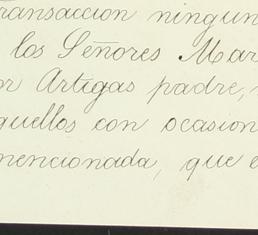 transaccion ningun
los Señores Mar
or Artigas padre,
quellos con ocasion
mencionada, que e